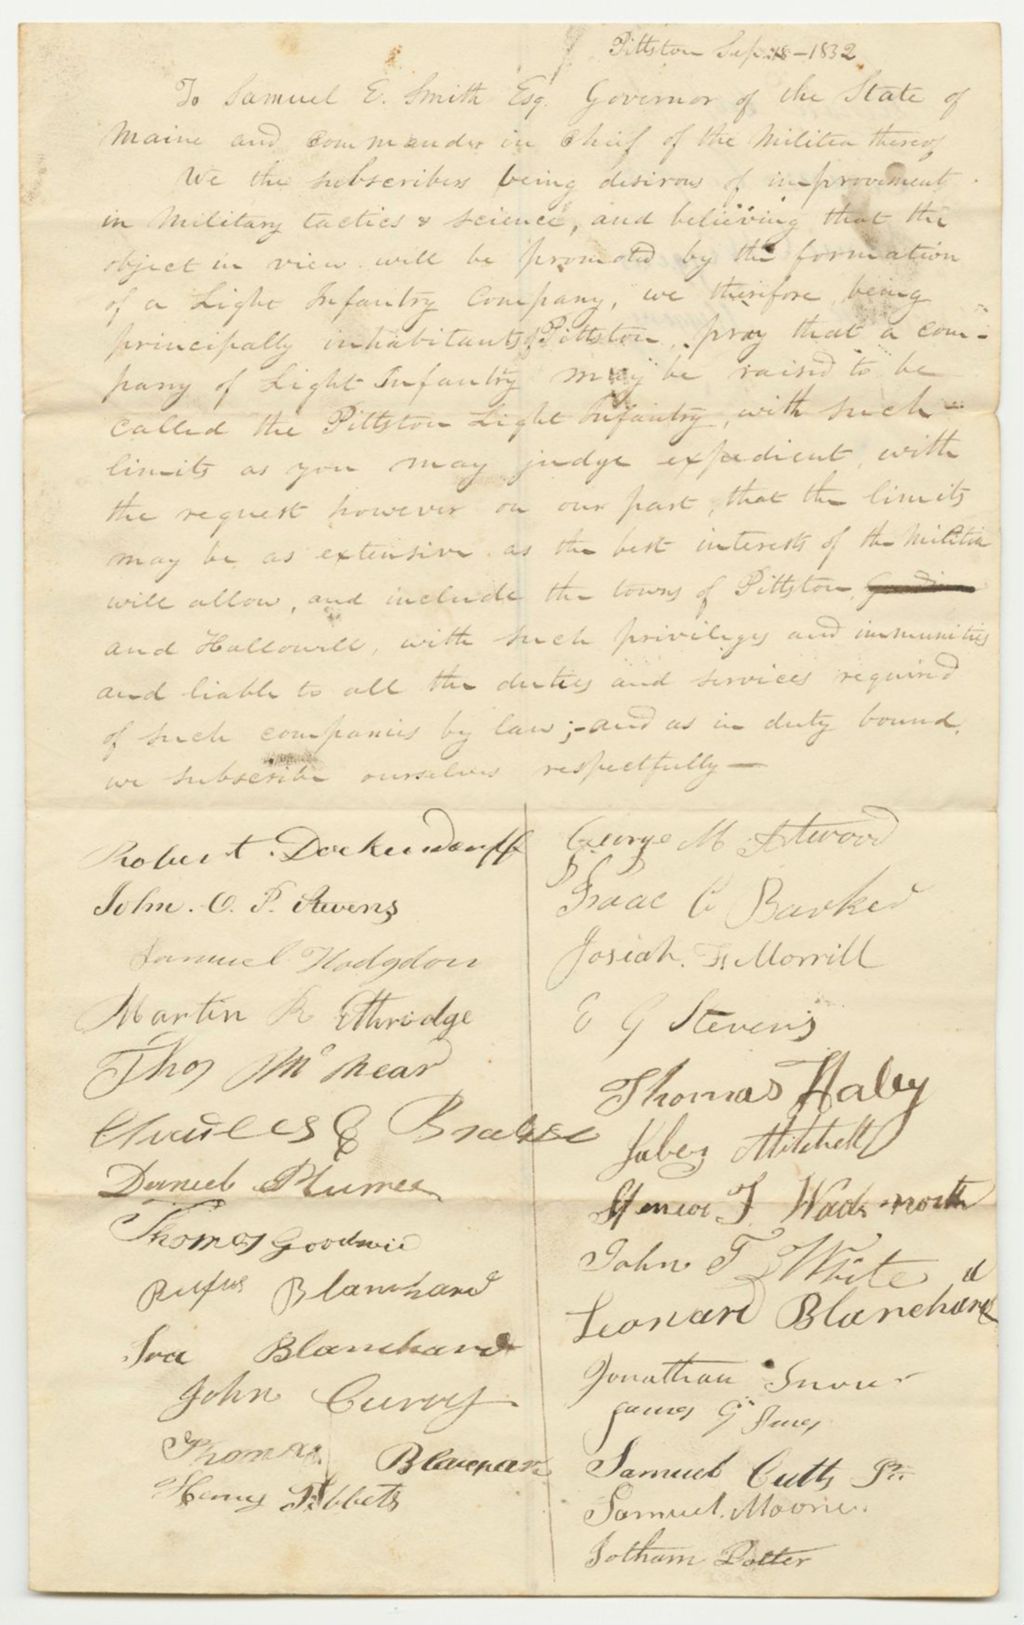 Pittston Sep. 18 - 1832
To Samuel E. Smith Esq. Governor of the State of
Maine and commander in Chief of the Militea thereof
We the subscribers being desirous of improvement
in Military tactics & science, and believing that the
object in view will be promoted by the formation
of a Light Infantry Company, we therefore, being
principally inhabitants of Pittston, pray that a com-
pany of Light Infantry may be raised to be
called the Pittston Light Infantry, with such
limits as you may judge expedient, with
the request however on our part, that the limits
may be as extensive as the best interests of the Militia
will allow, and include the towns of Pittston,
and Hallowell, with such privileges and immunities
and liable to all the duties and services required
of such companies by law; - and as in duty bound,
we subscribe ourselves respectfully —
Robert Dockendorff
John. O. P. Stevens
Samuel Hodgdon
Martin R Ethridge
Thos Mc Near
Charles
Daniel Plumer
Thomas Goodwin
Rufus Blanchard
Ira Blanchard
John
Thomas
Henry Tibbets
George M Atwood
Isaac C Barker
Josiah. F. Morrill
E G Stevens
Thomas Haley
Jabez Mitchell
T. Wadsworth
John T White
Leonard Blanchard
Jonathan Snow
James G
Samuel Cutts Jr.
Samuel Moore.
Jotham Potter